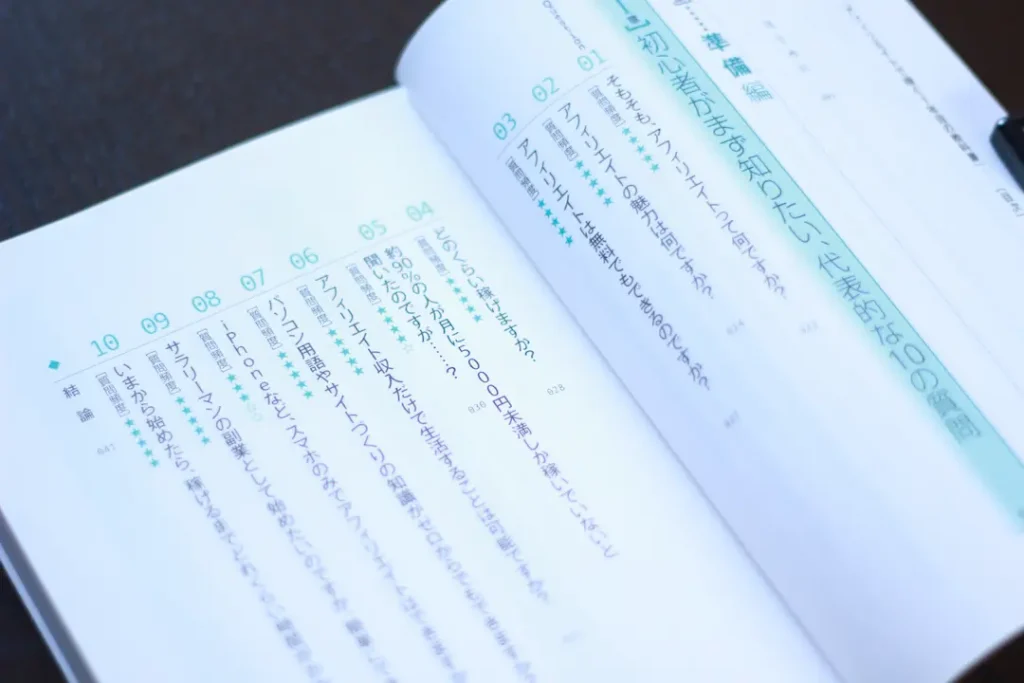 準備編
】初心者がまず知りたい、代表的な10の質問
Question
01
そもそも、アフィリエイトって何ですか?
[質問頻度]★★★★★
02
アフィリエイトの魅力は何ですか?
[質問頻度]★★★★★
03
アフィリエイトは無料でもできるのですか?
[質問頻度]★★★★★
04
どのくらい稼げますか?
[質問頻度]★★★★★
028
05
約90%の人が月に5000円未満しか稼いでいないと
聞いたのですが……?
[質問頻度]★★★★☆
030
06
アフィリエイト収入だけで生活することは可能ですか?
[質問頻度]★★★★★
07
パソコン用語やサイトつくりの知識がゼロからでもできますか
[質問頻度]★★★★★
08
iPhoneなど、スマホのみでアフィリエイトはできます
[質問頻度]★★★☆☆
09
サラリーマンの副業として始めたいのですが
[質問頻度]★★★★★
10
いまから始めたら、稼げるまでどれくらい
[質問頻度]★★★★★
◆
結論